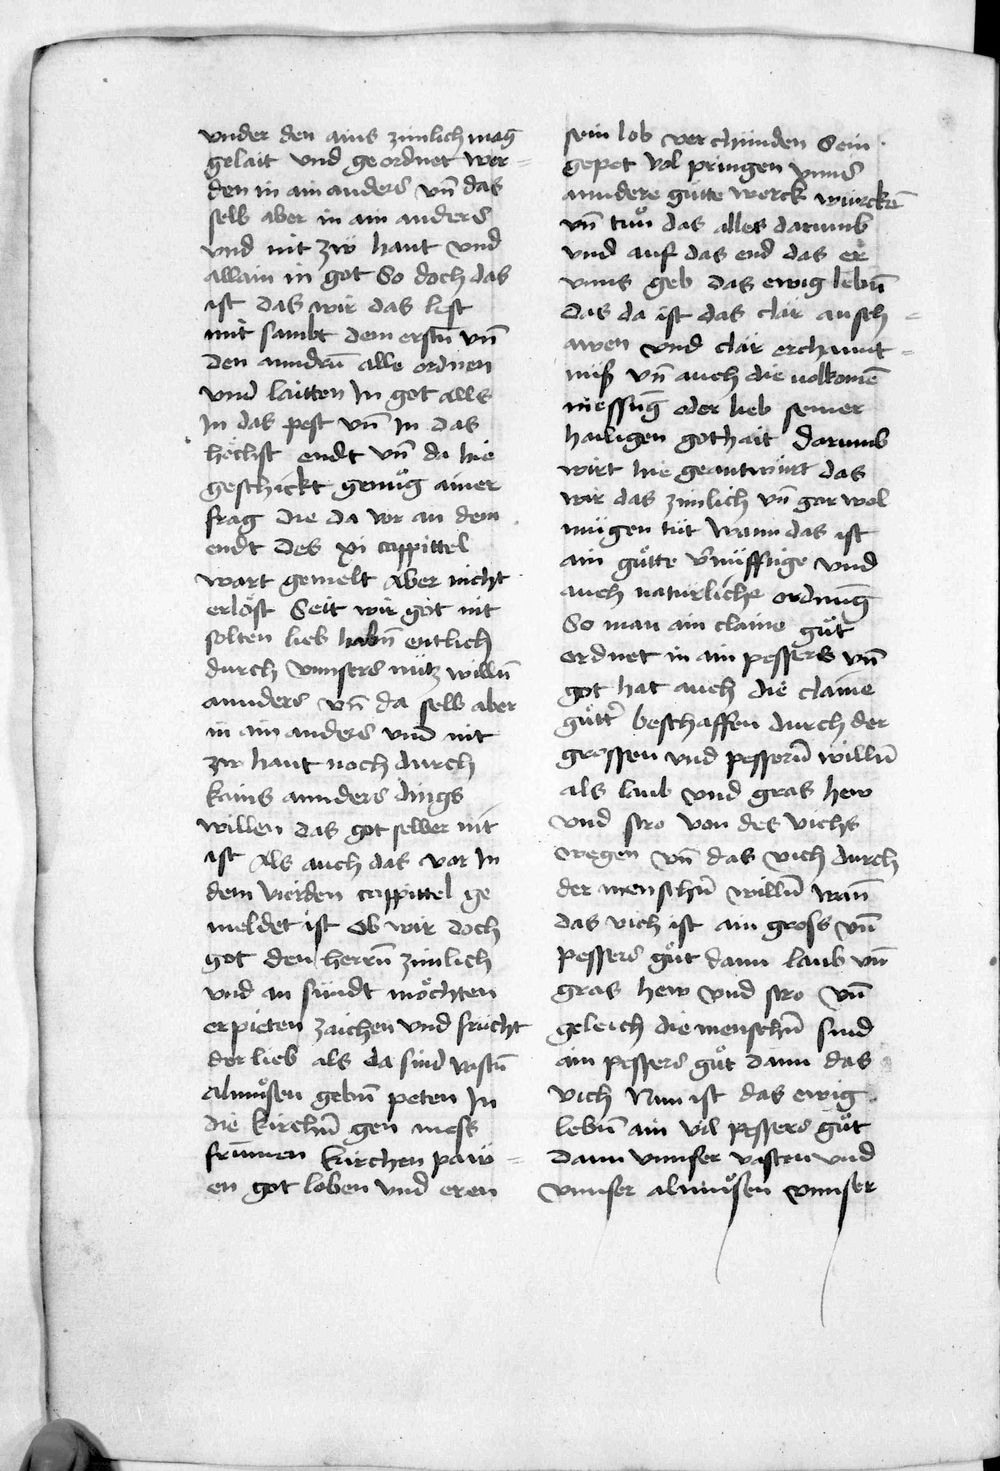 vnder den ains zimlich mag
gelait vnd geordnet wer=
den in ain anders vn̄ das
selb aber in ain anders
vnd nit zw hant vnd
allain in got So doch das
ist das wir das lest
mit sambt dem erstn̄ vn̄
den anndrn̄ alle ordnen
vnd laitten In got alls
In das pest vn̄ In das
höchst endt vn̄ da hie
geschickt genůg ainer
frag die da vor an dem
endt des xi cappittel
wart gemelt Aber nicht
erlöst Seit wir got nit
solten lieb habn̄ entlich
durch vnnsers nutz willn̄
annders vn̄ da selb aber
in ain anders vnd nit
zw hant noch durch
kains annders dings
willen das got selber nit
ist Als auch das vor In
dem vierden cappittel ge
meldet ist Ob wir doch
got den herrn̄ zimlich
vnd an sündt möchten
erpieten zaichen vnd frücht
der lieb als da sind vastn̄
Almůsen gebn̄ peten In
die kirchn̄ gen mess
frūmen kirchen paw=
en got loben vnd eren
sein lob ver chünden Sein
gepot vol pringen vnns
anndere gütte werck würckē
vn̄ tůn das alles darumb
vnd auf das end das er
vnns geb das ewig lebn̄
das da ist das clar ansch=
awen vnd clar erchannt=
niß vn̄ auch die volkomē
niessūg oder lieb seiner
hailigen gothait Darumb
wirt hie geantwürt das
wir das zimlich vn̄ gar wol
mügen tüt Wann das ist
ain gütte v̄nüfftige vnd
auch natürliche ordnūg
So man ain claine gůt
ordnet in ain pessers vn̄
got hat auch die claine
gütt̄ beschaffen durch der
grossen vnd pessern̄ willn̄
als laub vnd gras hew
vnd stro von des vichs
wegen vn̄ das vich durch
der menschn̄ willn̄ wan̄
das vich ist ain gross vn̄
pessers gůt dann laub vn̄
gras hew vnd stro vn̄
geleich die menschn̄ sind
ain pessers gůt dann das
vich Nun ist das ewig
lebn̄ ain vil pessers gůt
dann vnnser vasten vnd
vnnser almůsen vnnser